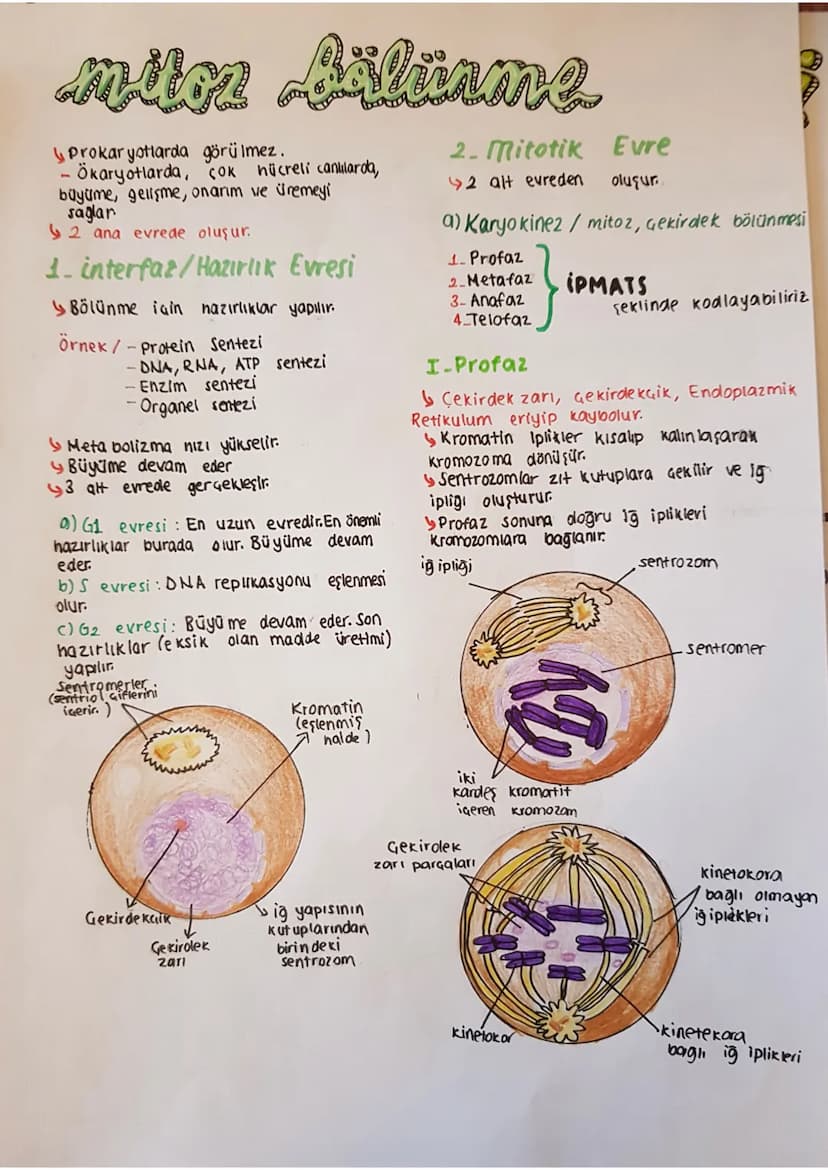 mitoz bölünme
↳ Prokaryotlarda görülmez.
- Ökaryotlarda, çok hücreli canlılarda,
büyüme, gelişme, onarım ve üremeyi
sağlar
↳ 2 ana evrede oluşur.
1- interfaz/Hazırlık Evresi
↳ Bölünme için hazırlıklar yapılır.
Örnek / - Protein Sentezi
- DNA, RNA, ATP sentezi
- Enzim sentezi
- Organel sentezi
↳ Metabolizma hızı yükselir.
↳ Büyüme devam eder
↳ 3 alt evrede gerçekleşir.
a) G1 evresi : En uzun evredir. En önemli
hazırlıklar burada olur. Büyüme devam
eder.
b) S evresi : DNA replikasyonu eşlenmesi
olur.
c) G2 evresi : Büyüme devam eder. Son
hazırlıklar (eksik olan madde üretimi)
yapılır
Sentromerler
(sentriol çiftlerini
içerir.)
Kromatin
(eşlenmiş
halde)
Çekirdekcik
Çekirdek
zarı
iğ yapısının
kutuplarından
birindeki
sentrozom
2- Mitotik Evre
↳ 2 alt evreden oluşur.
a) Karyokinez / mitoz, çekirdek bölünmesi
1- Profaz
2- Metafaz
3- Anafaz
4- Telofaz
İPMATS
şeklinde kodlayabiliriz
I-Profaz
↳ Çekirdek zarı, çekirdekcik, Endoplazmik
Retikulum eriyip kaybolur.
↳ Kromatin iplikler kısalıp kalınlaşarak
kromozoma dönüşür.
↳ Sentrozomlar zıt kutuplara çekilir ve iğ
ipliği oluşturur.
↳ Profaz sonuna doğru iğ iplikleri
kromozomlara bağlanır.
iğ ipliği
sentrozom
sentromer
iki
kardeş kromatit
içeren kromozom
Çekirdek
zarı parçaları
kinetokora
bağlı olmayan
iğ iplikleri
kinetokor
kinetekora
bağlı iğ iplikleri